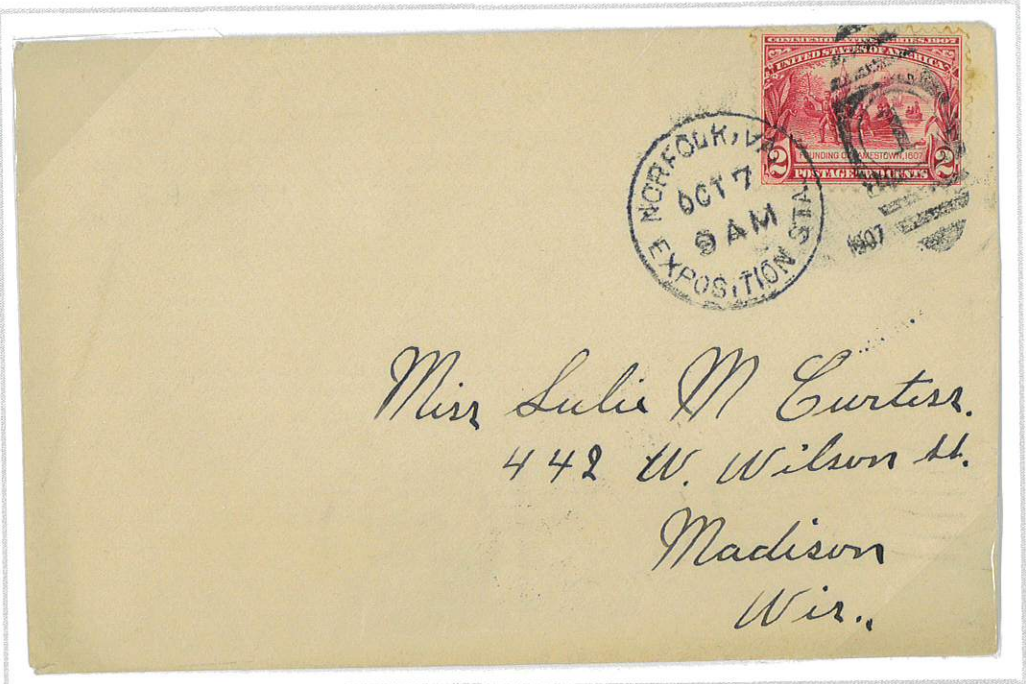 COMMEMORATIVE SERIES, 1907
UNITED STATES OF AMERICA
FOUNDING OF JAMESTOWN, 1607
2 POSTAGE CENTS 2
NORFOLK, VA.
OCT 7
9 AM
EXPOSITION STA.
1907
1
Miss Lulie M Curtiss.
442 W. Wilson St.
Madison
Wis.,